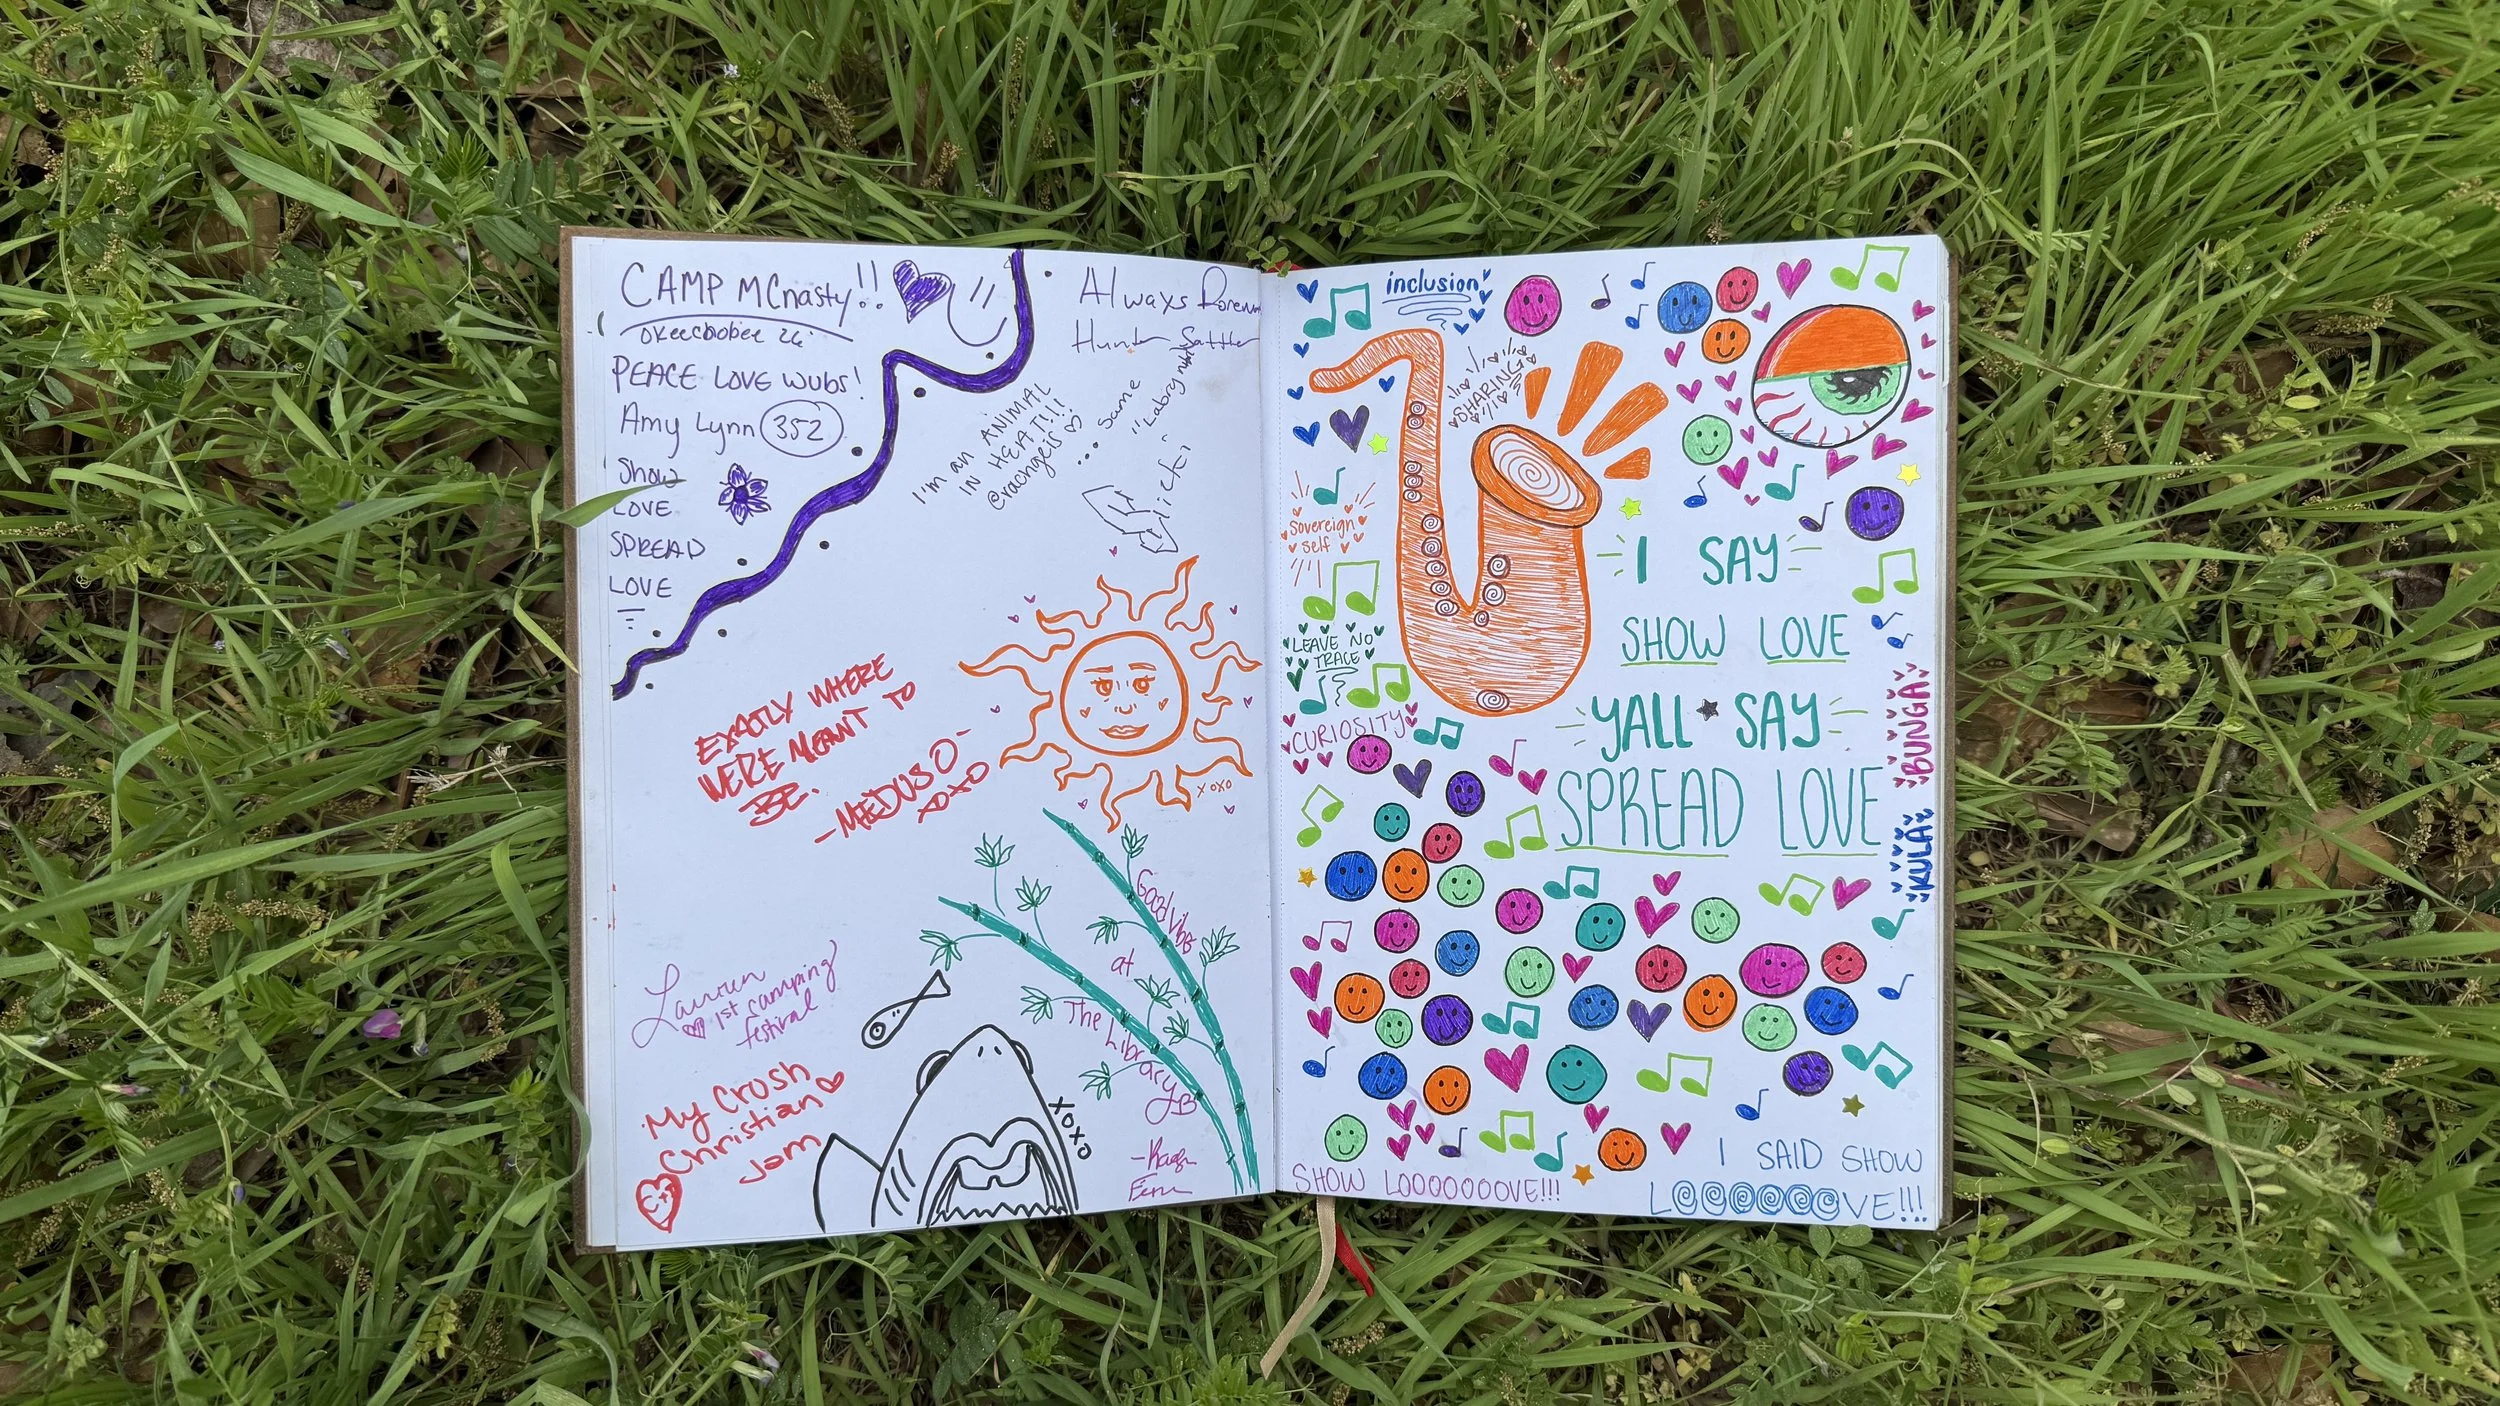 CAMP MCnasty!!
OKeechobee 26
PEACE LOVE WUBS!
Amy Lynn 352
Show
LOVE
SPREAD
LOVE
Always
Hunter
I'm an ANIMAL
IN HEAT!!!
... Same
EXACTLY WHERE
WERE MEANT TO
BE.
- MEDUSO -
XOXO
xoxo
Lauren
1st camping
festival
My Crush
Christian
Jam
XOXO
Good Vibz
at
The Library
inclusion
SHARING
Sovereign
self
LEAVE NO
TRACE
CURIOSITY
I SAY
SHOW LOVE
YALL SAY
SPREAD LOVE
BUNGA
KULA
SHOW LOOOOOOOVE!!!
I SAID SHOW
LOOOOOOVE!!!